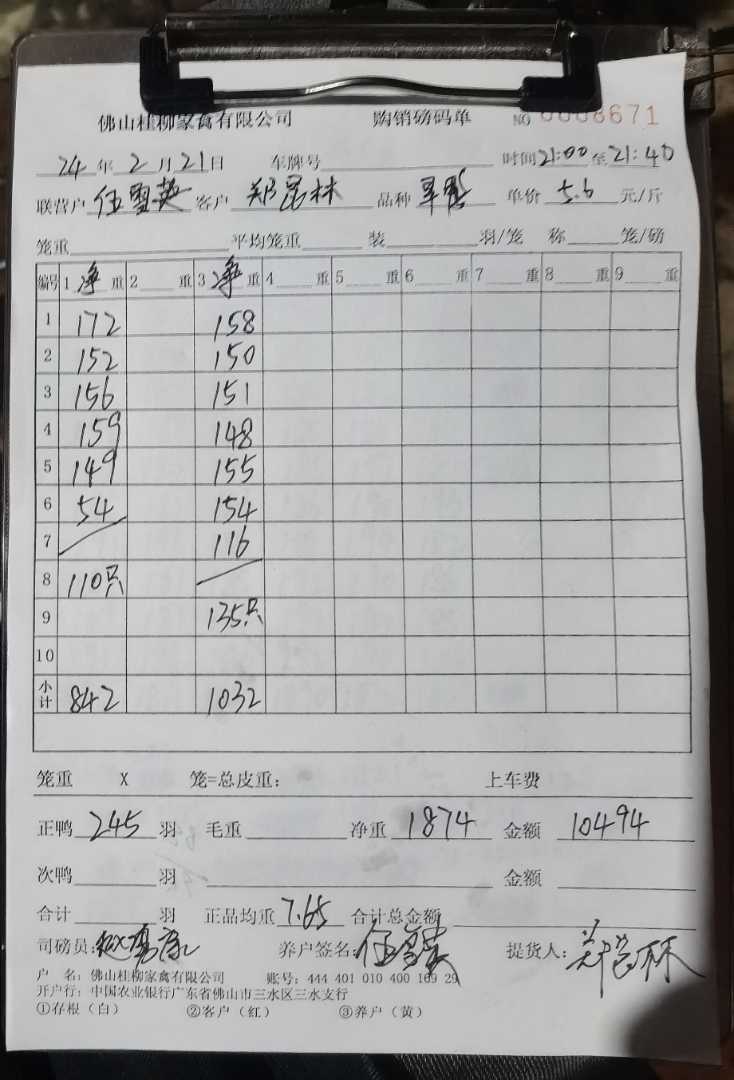 佛山桂柳家禽有限公司 购销磅码单 NO 0008671
24年2月21日 车牌号 时间21:00至21:40
联营户 伍雪英 客户 郑昆林 品种 单价 5.6 元/斤
笼重 平均笼重 装 羽/笼 称 笼/磅
编号 1净重 2 重 3净重 4 重 5 重 6 重 7 重 8 重 9 重
1 172 158
2 152 150
3 156 151
4 159 148
5 149 155
6 54 154
7 116
8 110只
9 135只
10
小计 842 1032
笼重 X 笼=总皮重: 上车费
正鸭 245 羽 毛重 净重 1874 金额 10494
次鸭 羽 金额
合计 羽 正品均重 7.65 合计总金额
司磅员: 养户签名: 伍雪英 提货人: 郑昆林
户 名: 佛山桂柳家禽有限公司 账号: 444 401 010 400 169 29
开户行: 中国农业银行广东省佛山市三水区三水支行
①存根（白） ②客户（红） ③养户（黄）